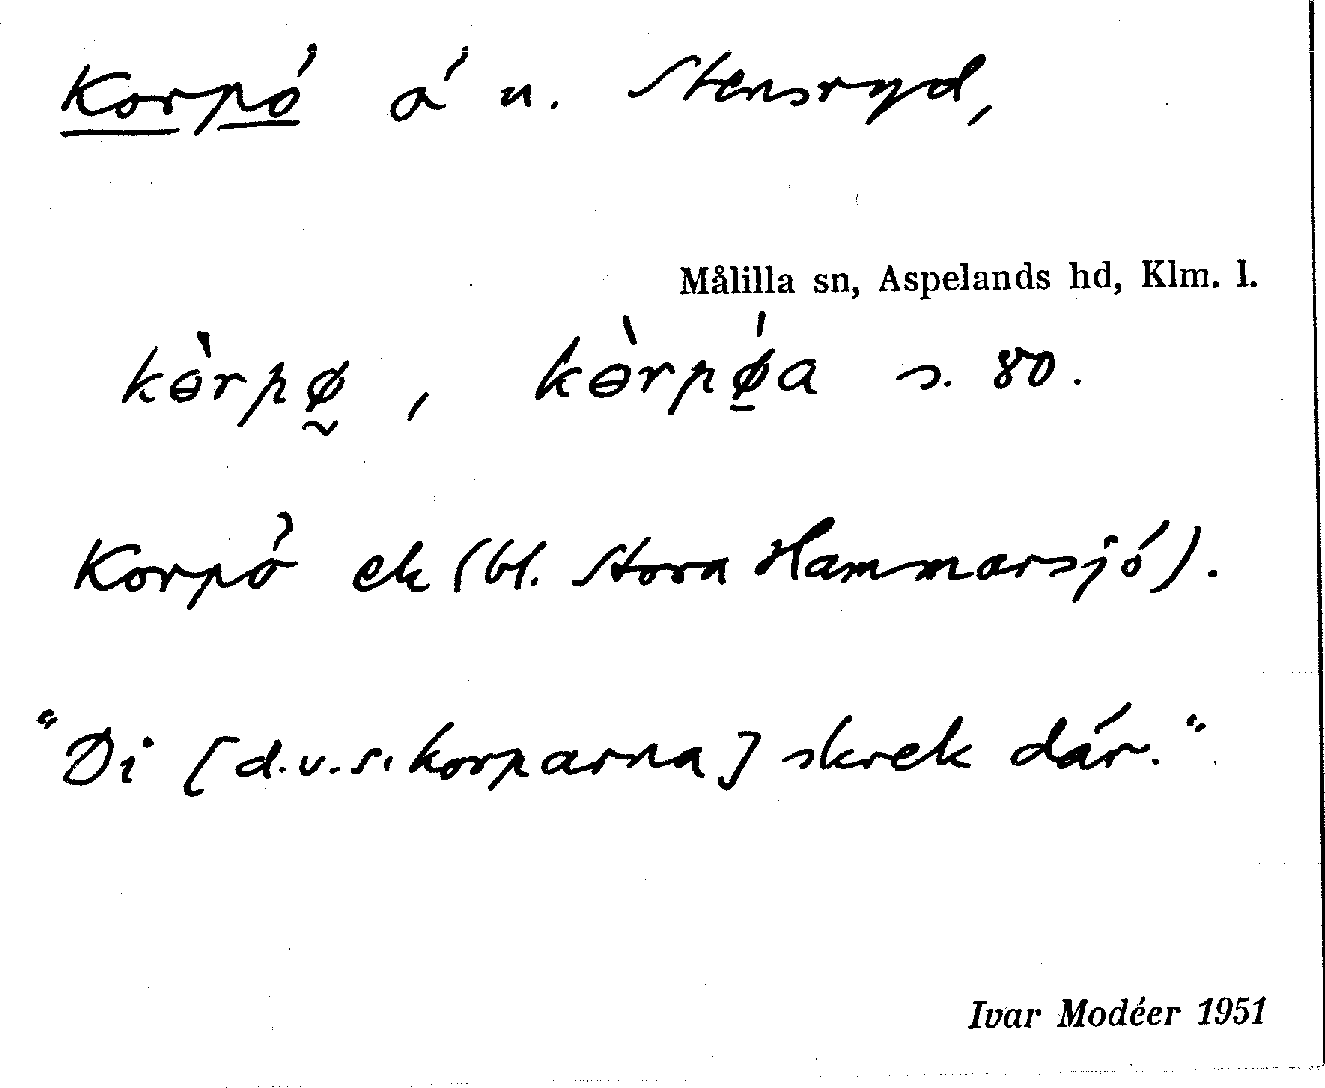 Korpö ö u. Stensryd,
Målilla sn, Aspelands hd, Klm. l.
kɵ̀rpø̰, kɵ̀rpǿ̱a s. 80.
Korpö ek (bl. Stora Hammarsjö).
"Di [d.v.s. korparna] skrek där."
Ivar Modéer 1951